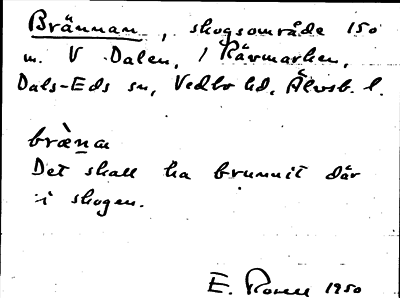 Brännan, skogsområde 150
m. V Dalen, i Rävmarken,
Dals-Eds sn, Vedbo hd, Älvsb. l.
bræ̀na
Det skall ha brunnit där
i skogen.
E. 1950